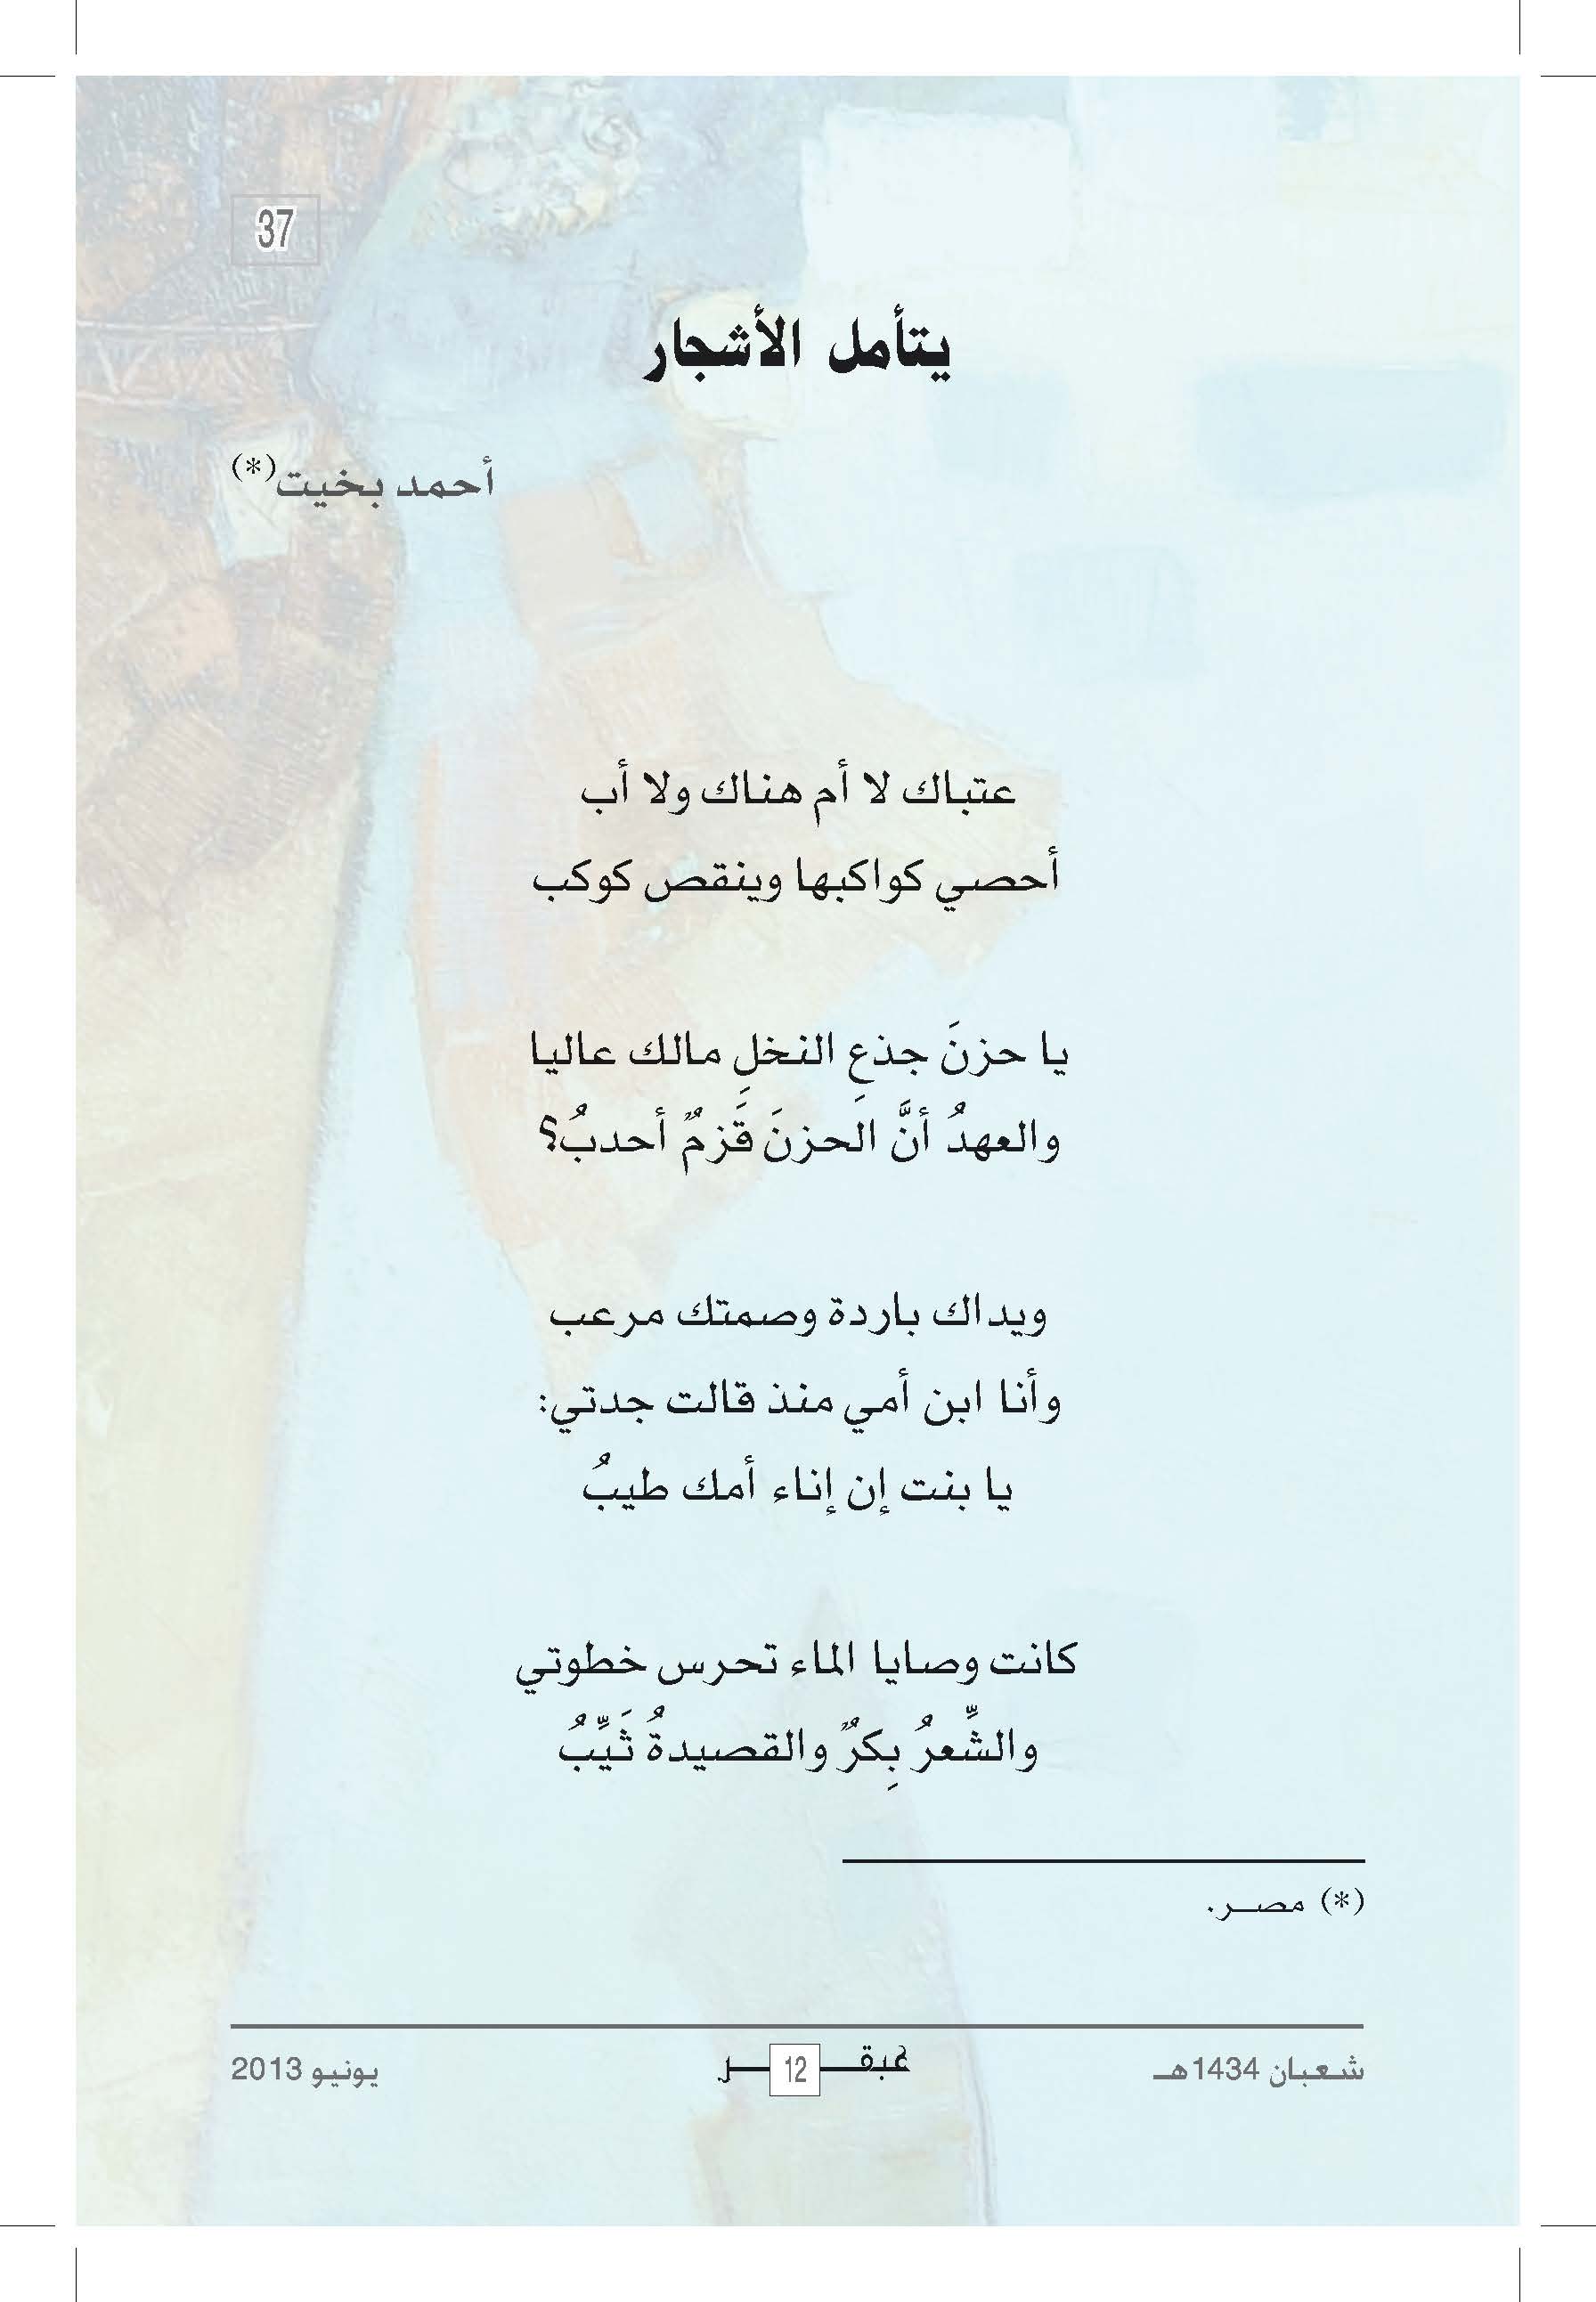 37
يتأمل الأشجار
أحمد بخيت(*)
عتباك لا أم هناك ولا أب
أحصي كواكبها وينقص كوكب
يا حزنَ جذعِ النخلِ مالك عاليا
والعهدُ أنَّ الحزنَ قَزمٌ أحدبُ؟
ويداك باردة وصمتك مرعب
وأنا ابن أمي منذ قالت جدتي:
يا بنت إن إناء أمك طيبُ
كانت وصايا الماء تحرس خطوتي
والشِّعرُ بِكرٌ والقصيدةُ ثَيِّبُ
(*) مصـر.
شعبان 1434هـ عبقـ 12 ـر يونيو 2013